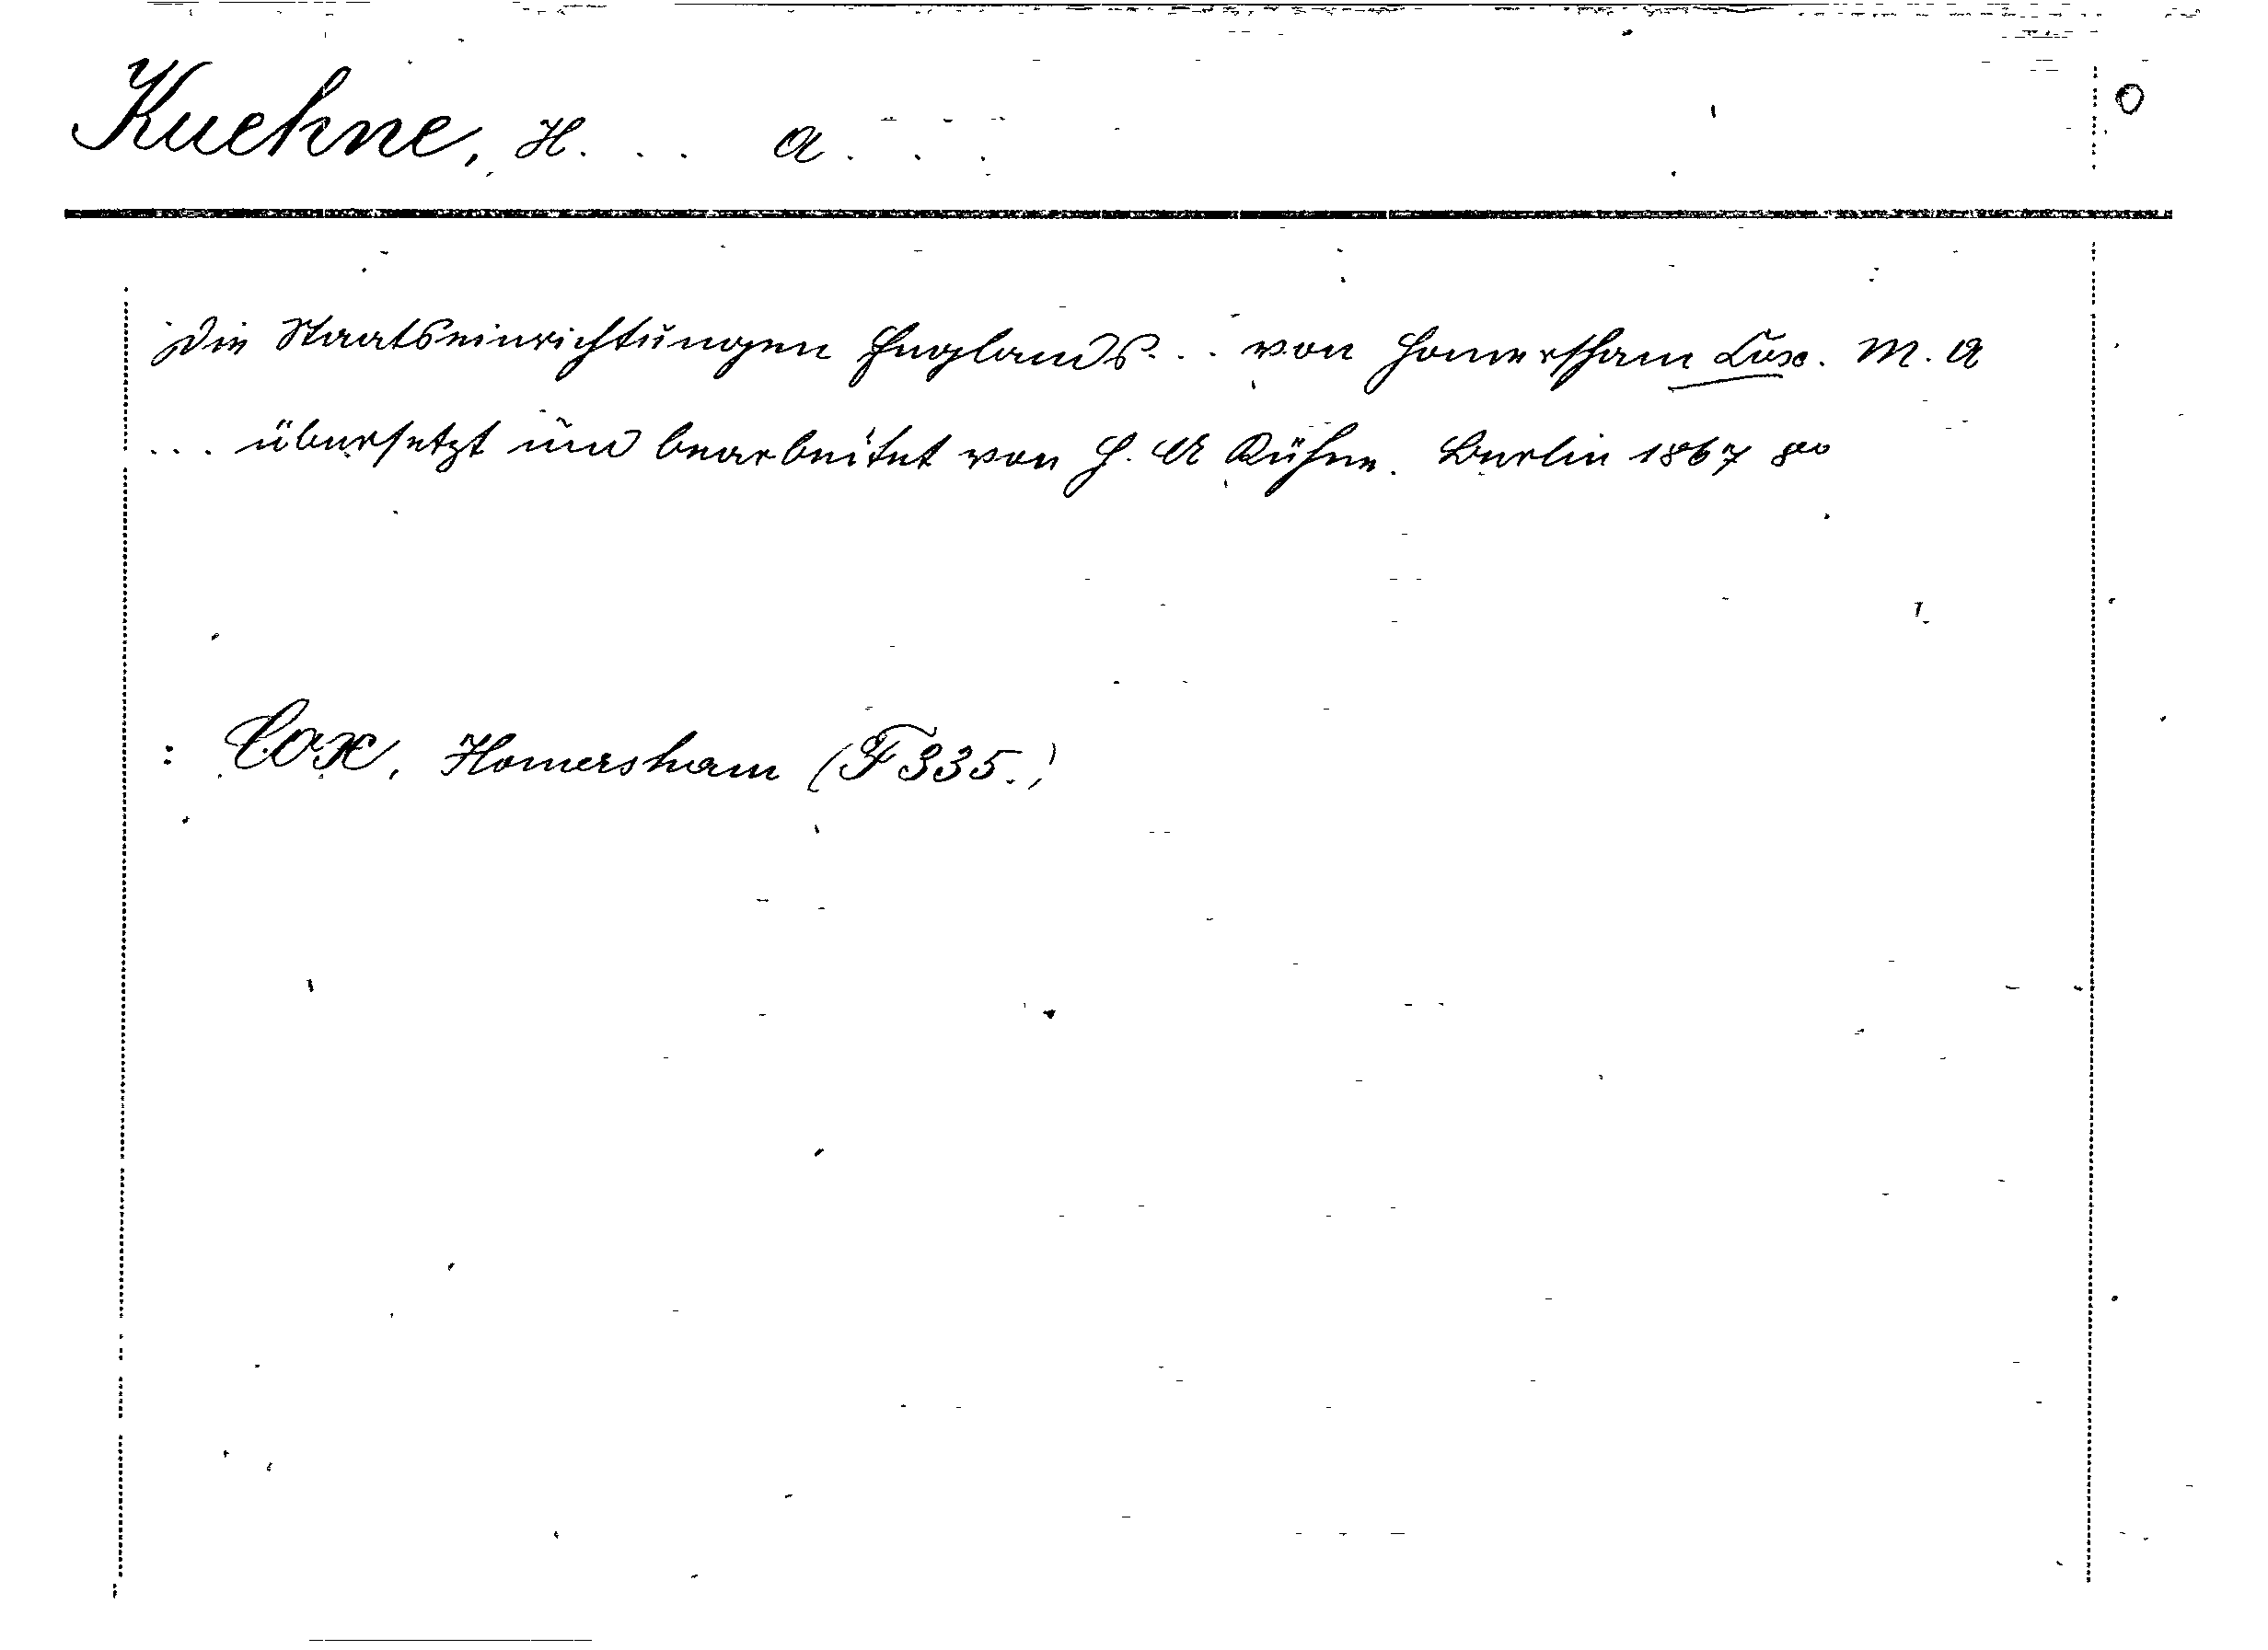 Kuehne, H... A...
Die Staatseinrichtungen Englands... von Homersham Cox. M. A
... übersetzt und bearbeitet von H. A Kühne. Berlin 1867 8vo
: Cox, Homersham (F 335.)